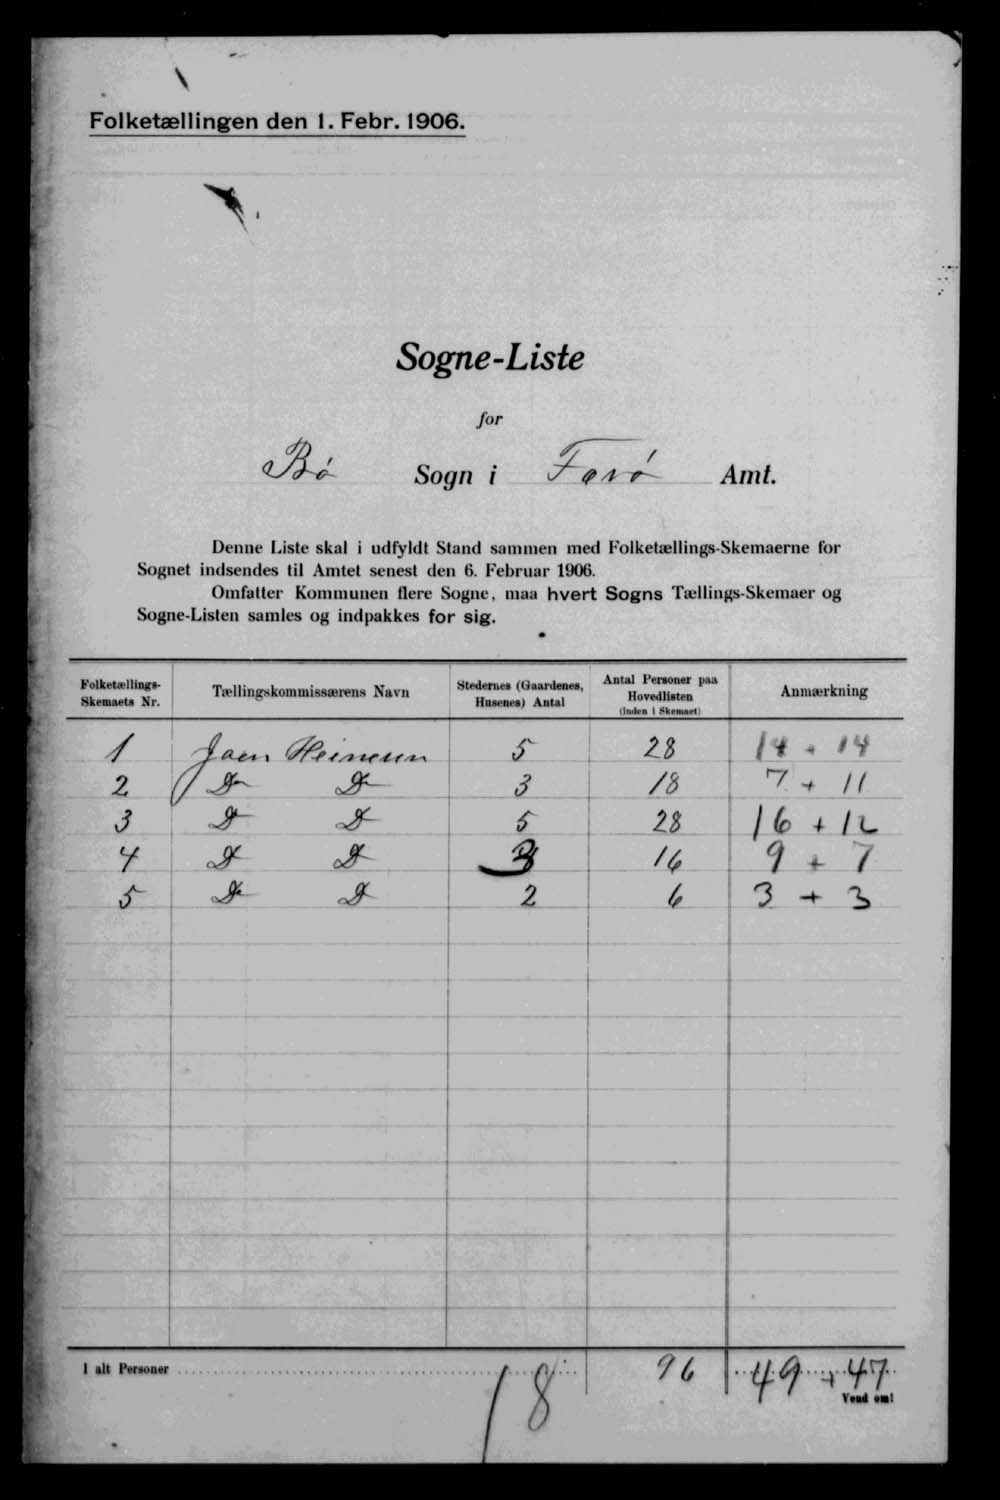 Folketællingen den 1. Febr. 1906.
Sogne-Liste
for
Bø Sogn i Færø Amt.
Denne Liste skal i udfyldt Stand sammen med Folketællings-Skemaerne for
Sognet indsendes til Amtet senest den 6. Februar 1906.
Omfatter Kommunen flere Sogne, maa hvert Sogns Tællings-Skemaer og
Sogne-Listen samles og indpakkes for sig.
Folketællings-Skemaets Nr. Tællingskommissærens Navn Stedernes (Gaardenes, Husenes) Antal Antal Personer paa Hovedlisten (inden i Skemaet) Anmærkning
1 Joen Heinesen 5 28 14 + 14
2 Do Do 3 18 7 + 11
3 Do Do 5 28 16 + 12
4 Do Do 3 16 9 + 7
5 Do Do 2 6 3 + 3
I alt Personer 18 96 49 + 47
Vend om!